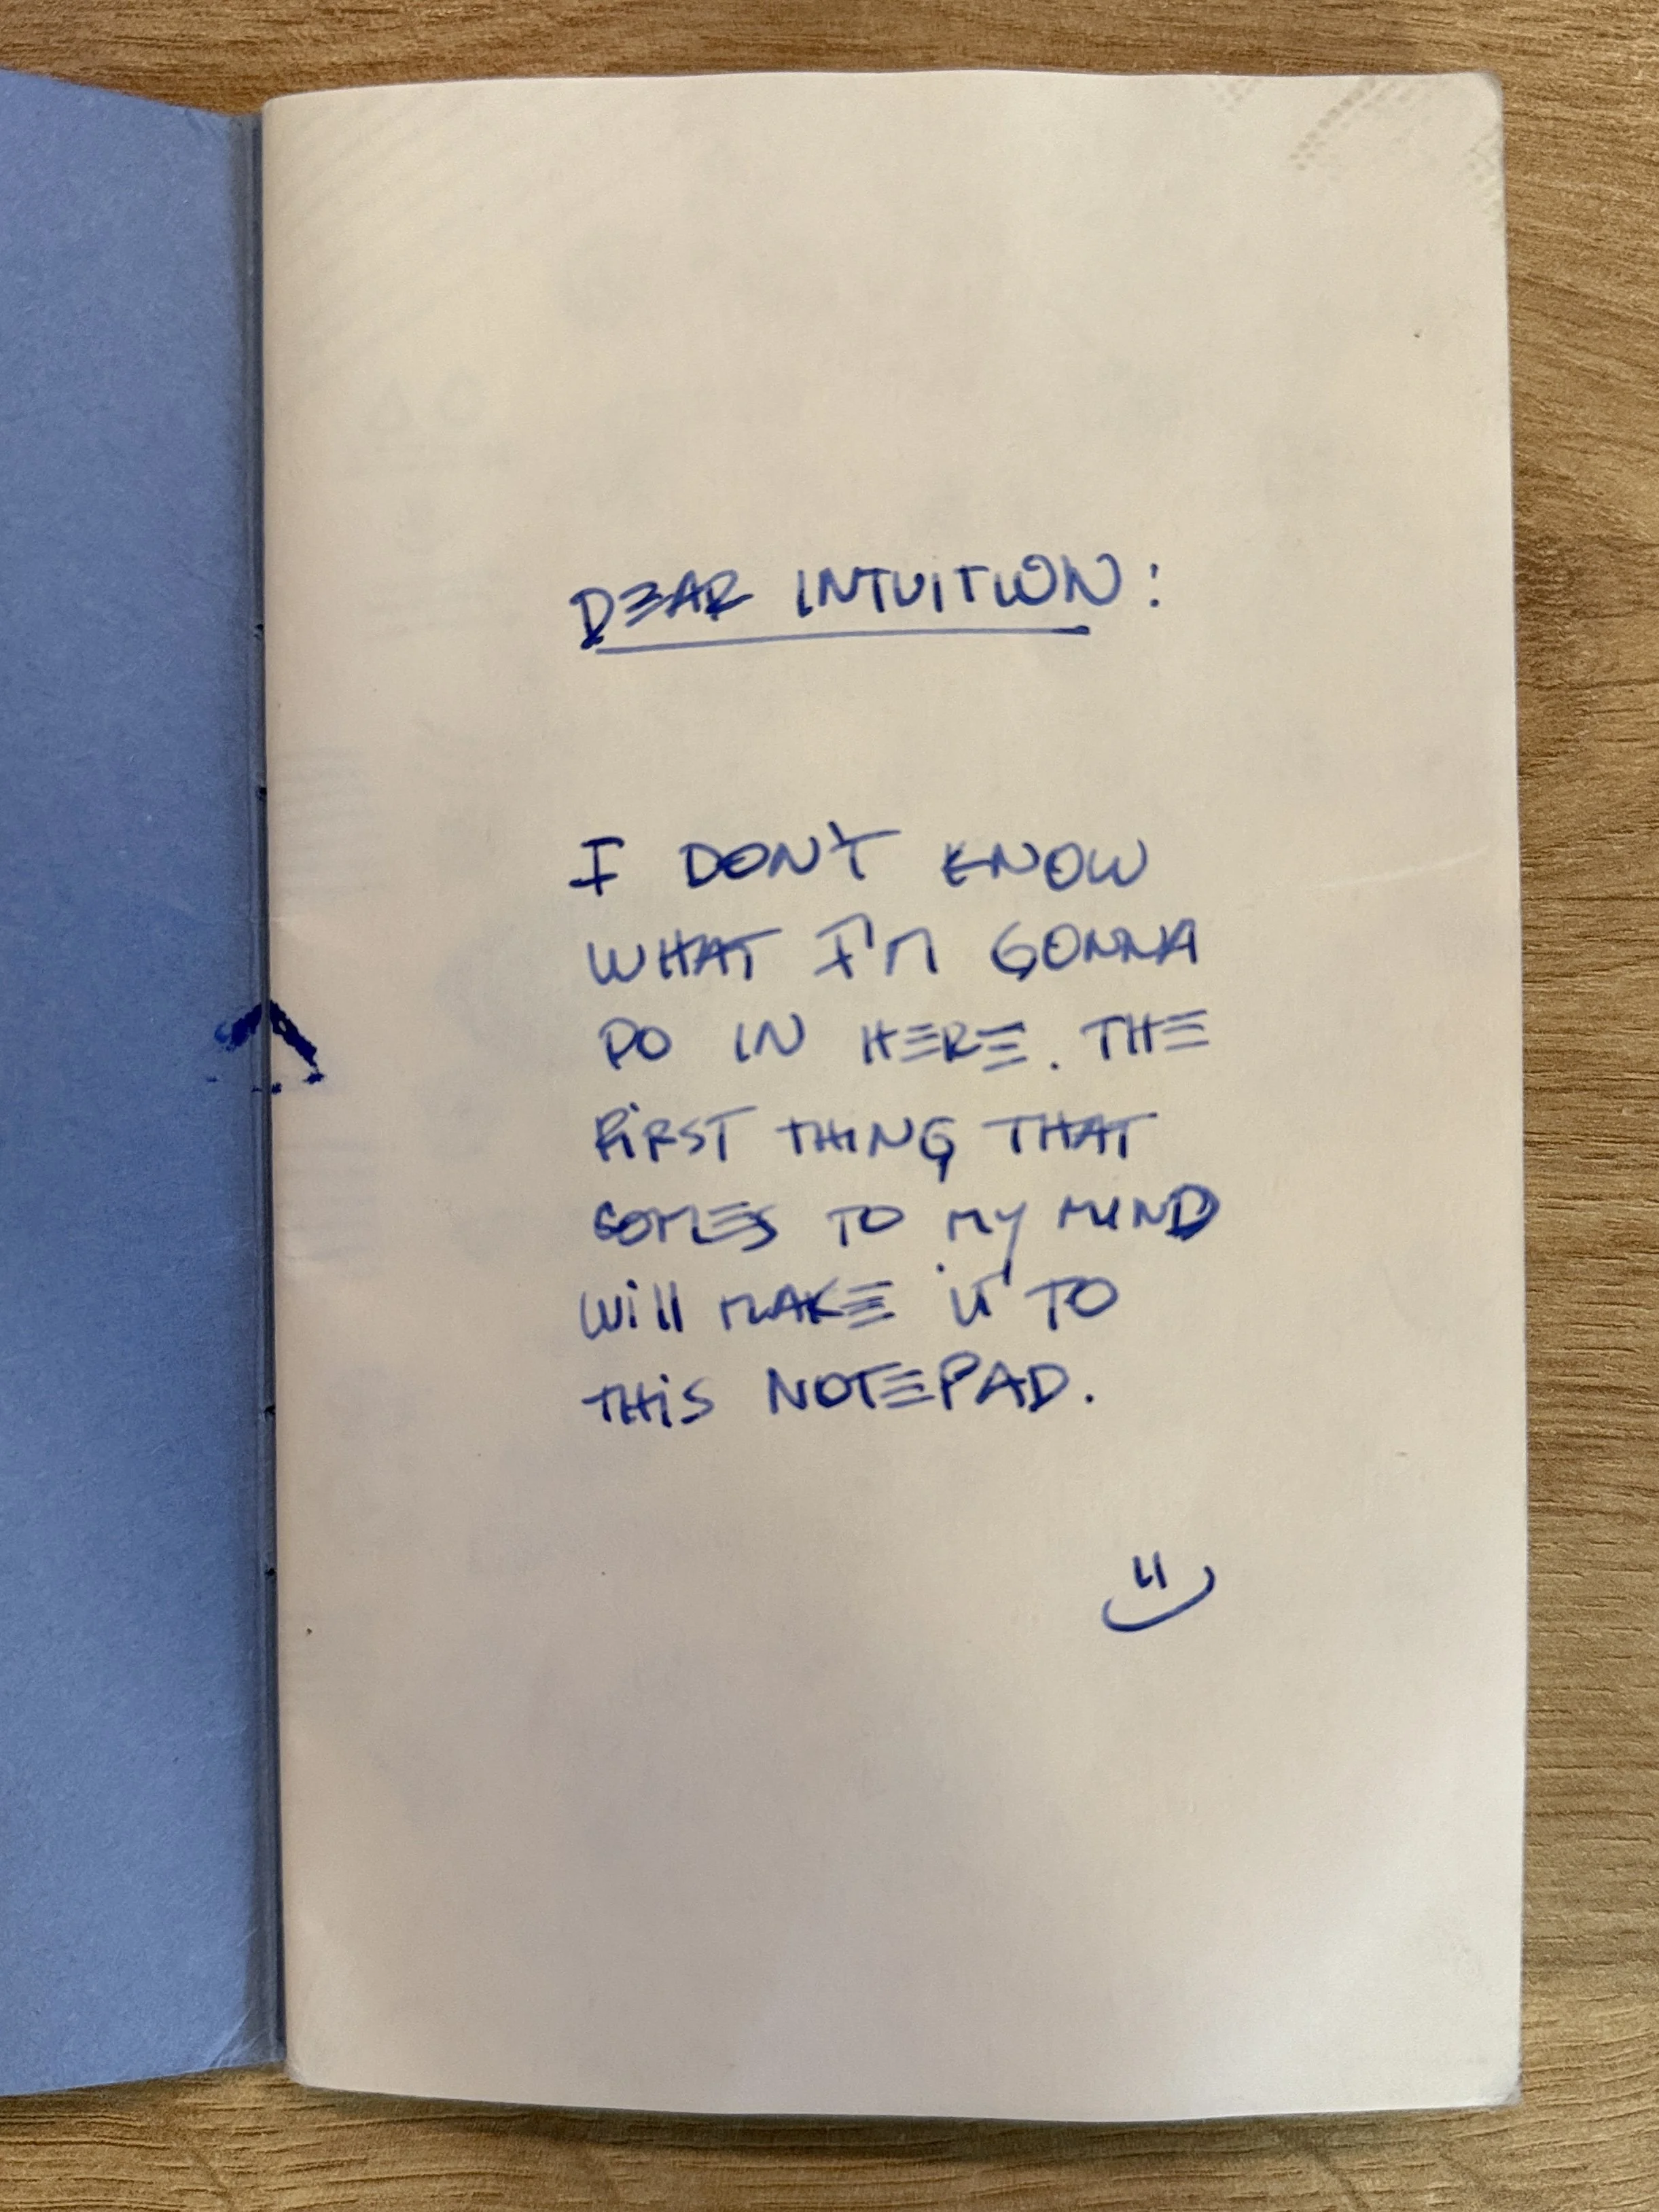 DEAR INTUITION:
I DON'T KNOW
WHAT I'M GONNA
DO IN HERE. THE
FIRST THING THAT
COMES TO MY MIND
WILL MAKE IT TO
THIS NOTEPAD.